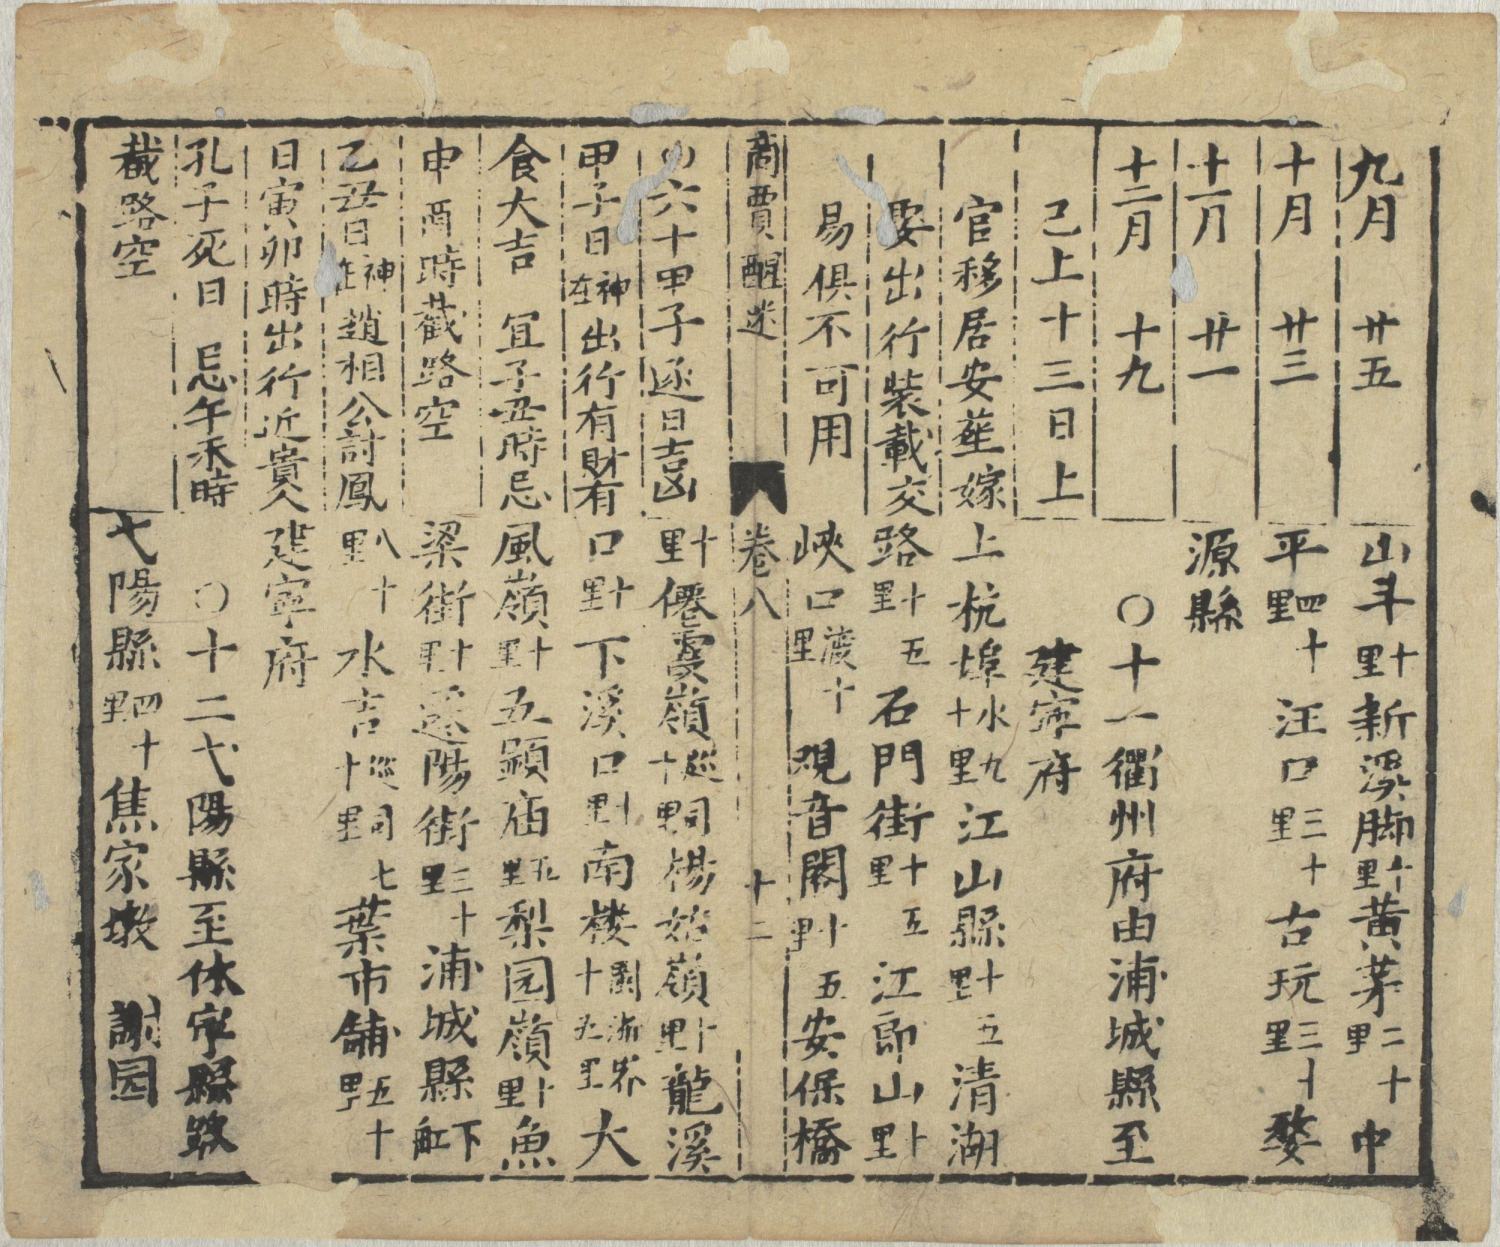 九月 廿五
十月 廿三
十一月 廿一
十二月 十九
已上十三日上
官移居安葬嫁
娶出行裝載交
易俱不可用
山斗十里新溪脚十里黃茅二十里中
平四十里汪口三十里古玩三十里婺
源縣
○十一衢州府由浦城縣至
建寧府
上杭埠水九十里江山縣十五里清湖
路十五里石門街十五里江郎山十里
峽口渡十里觀音閣十五里安保橋
商賈醒迷 卷八 十二
○六十甲子逐日吉凶
甲子日神在出行有財有
食大吉 宜子丑時忌
申酉時截路空
乙丑日神在趙相公討鳳
日寅卯時出行近貴人
孔子死日 忌午未時
截路空
十里僊霞嶺巡司十里楊姑嶺十里龍溪
口十里下溪口十里南楼閩浙界十九里大
風嶺十里五顯庙五里梨园嶺十里魚
梁街十里迯陽街三十里浦城縣下舡
八十里水吉巡司七十里葉市舖五十里
建寧府
○十二弋陽縣至休寧縣路
弋陽縣四十里焦家墩 謝园